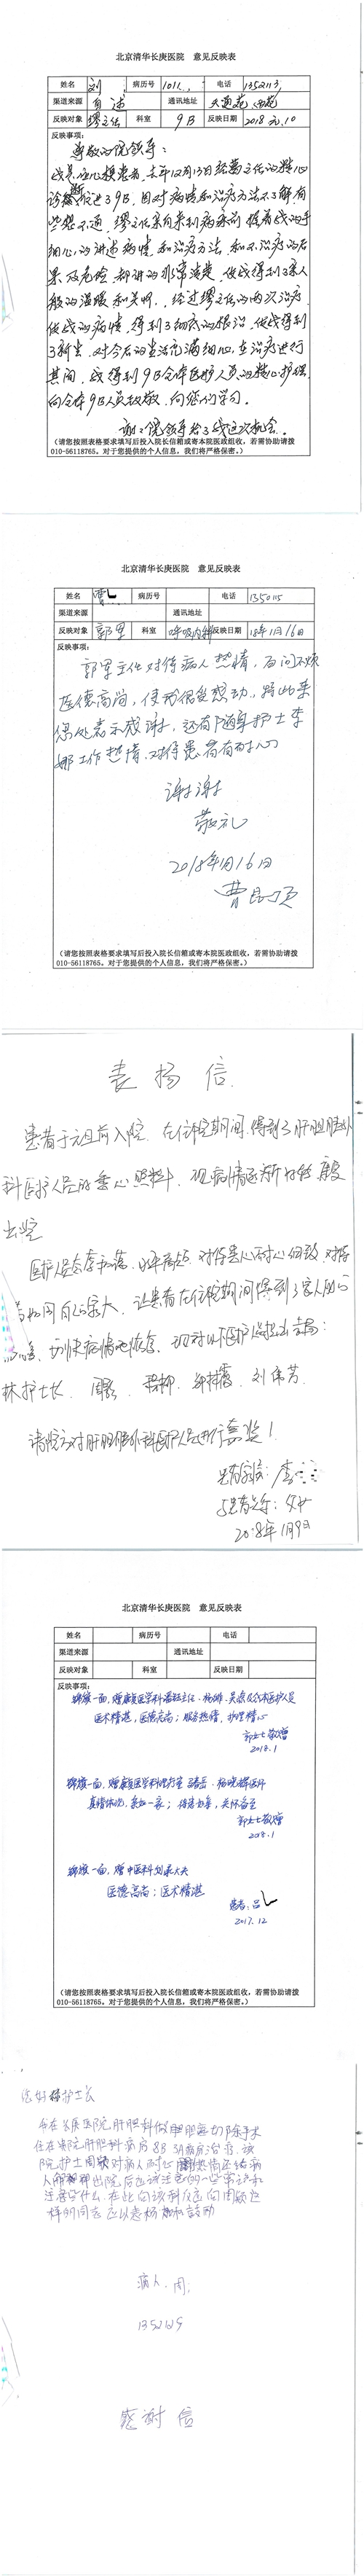 北京清华长庚医院 意见反映表
姓名 刘 病历号 1011 电话 1352113
渠道来源 自述 通讯地址 天通苑
反映对象 缪主任 科室 9B 反映日期 2018.元.10
反映事项：
尊敬的院领导：
我是 心梗患者，去年12月13日经葛主任的精心
诊断 进了9B，因对病情和治疗方法不了解有
些想不通，缪主任亲自来到病床前 握着我的手
细心的讲述病情和治疗方法 和不治疗的后
果及危险 都讲的非常清楚，使我得到了亲人
般的温暖和关照，经过缪主任的两次治疗，
使我的病情，得到了彻底的根治，使我得到
了新生，对今后的生活充满信心，在治疗进行
其间，我得到了9B全体医护人员的精心护理，
向全体9B人员致敬，向您们学习。
谢谢院领导给了我这次机会．
（请您按照表格要求填写后投入院长信箱或寄本院医政组收，若需协助请拨
010-56118765。对于您提供的个人信息，我们将严格保密。）
北京清华长庚医院 意见反映表
姓名 曹 病历号 电话 1350115
渠道来源 通讯地址
反映对象 郭军 科室 呼吸内科 反映日期 18年1月16日
反映事项：
郭军主任对待病人热情，百问不烦
医德高尚，使我很受感动，特此来
信处表示感谢，还有随身护士李
娜工作热情，对待患者有耐心
谢谢
敬礼
2018年1月16日
曹
（请您按照表格要求填写后投入院长信箱或寄本院医政组收，若需协助请拨
010-56118765。对于您提供的个人信息，我们将严格保密。）
表扬信
患者于元旦前入院，在住院期间，得到了肝胆胰外
科医护人员的悉心照料，现病情逐渐好转 康复
出院
医护人员态度和蔼，水平高点，对待患心耐心细致 对待
患者如同自己家人，让患者在住院期间得到了家人般的
温暖，切快病情地恢复，现对以下医护人员提出表扬：
林护士长，周颖， 柳，郭梓霞，刘伟芳．
请院方对肝胆胰外科医护人员进行嘉奖！
患者家属：李
与患者关系：父女
2018年1月9日
北京清华长庚医院 意见反映表
姓名 病历号 电话
渠道来源 通讯地址
反映对象 科室 反映日期
反映事项：
锦旗一面，赠康复医学科潘钰主任、杨 、吴 及全体医护人员
医术精湛，医德高尚；服务热情，护理精心
郭女士敬赠
2018.1
锦旗一面，赠康复医学科 ，杨晓辉医师
真情体现，亲如一家；待患如亲，关怀备至
郭女士敬赠
2018.1
锦旗一面，赠中医科刘 大夫
医德高尚；医术精湛
患者：吕
2017.12
（请您按照表格要求填写后投入院长信箱或寄本院医政组收，若需协助请拨
010-56118765。对于您提供的个人信息，我们将严格保密。）
您好 护士长
我在长庚医院肝胆科做胆囊切除手术
住在贵院肝胆科病房8B 病房治疗，该
院护士周颖对病人耐心热情还给病
人 出院后应该注意的一些事请和
注意些什么，在此向该科及应向周颖这
样的同志 以表扬和鼓励
病人，周
1352625
感谢信